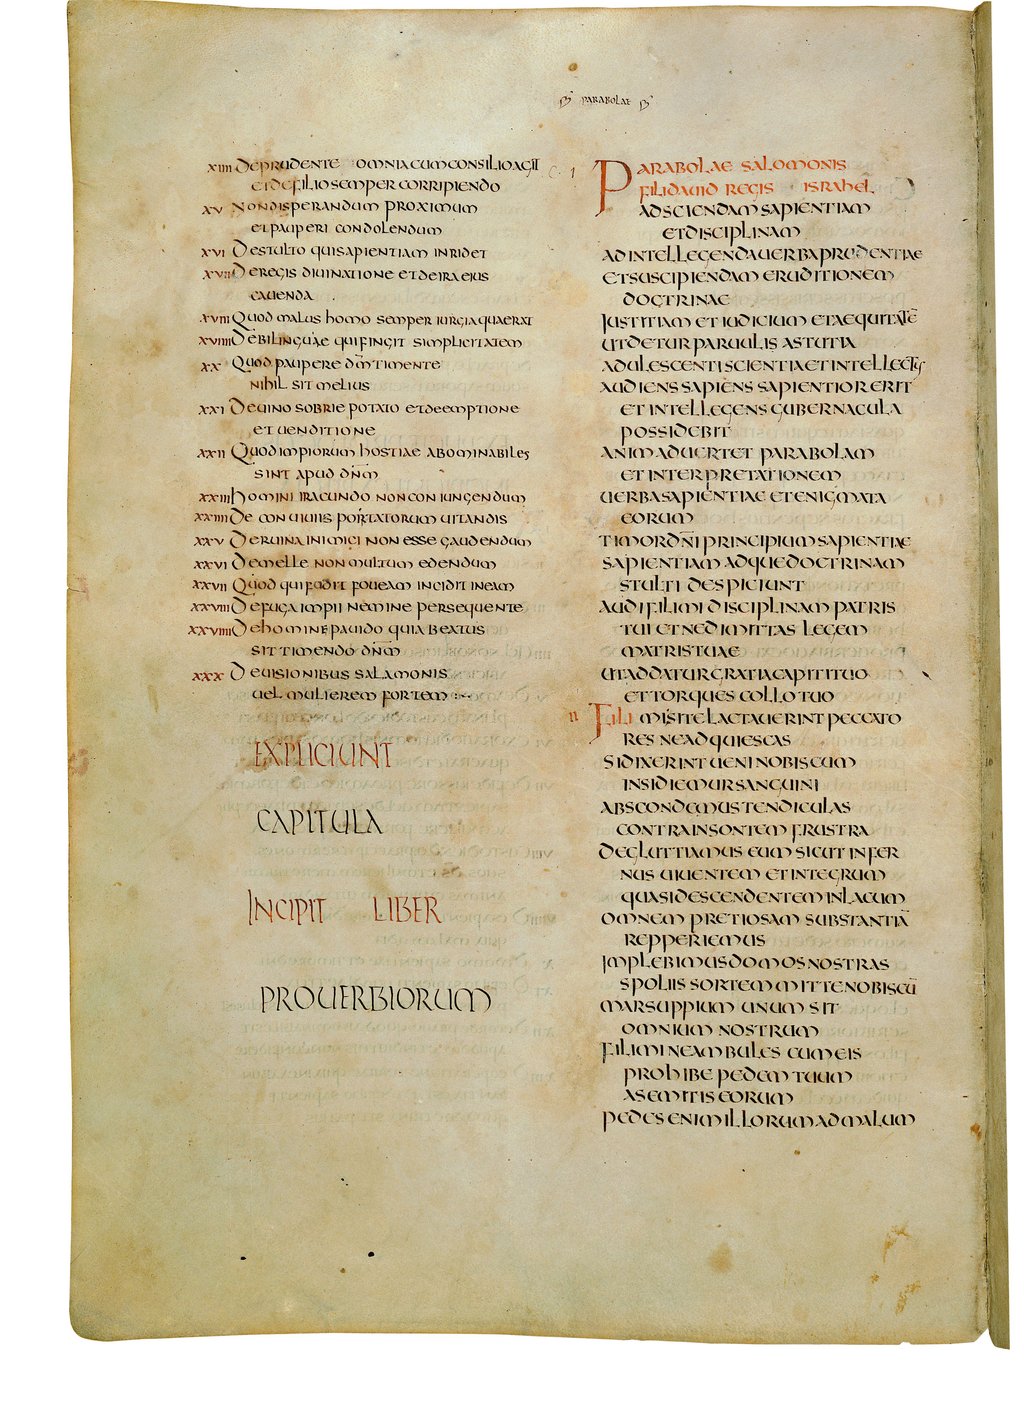 PARABOLAE
XIIII DE PRUDENTE OMNIA CUM CONSILIO AGIT
ET DE FILIO SEMPER CORRIPIENDO
XV NON DISPERANDUM PROXIMUM
ET PAUPERI CONDOLENDUM
XVI DE STULTO QUI SAPIENTIAM INRIDET
XVII DE REGIS DIUINATIONE ET DE IRA EIUS
CAUENDA
XVIII QUOD MALUS HOMO SEMPER IURGIA QUAERAT
XVIIII DE BILINGUAE QUI FINGIT SIMPLICITATEM
XX QUOD PAUPERE DM̄ TIMENTE
NIHIL SIT MELIUS
XXI DE UINO SOBRIE POTATO ET DE EMPTIONE
ET UENDITIONE
XXII QUOD IMPIORUM HOSTIAE ABOMINABILES
SINT APUD DNM̄
XXIII HOMINI IRACUNDO NON CONIUNGENDUM
XXIIII DE CONUIUIIS PORTATORUM UITANDIS
XXV DE RUINA INIMICI NON ESSE GAUDENDUM
XXVI DE MELLE NON MULTUM EDENDUM
XXVII QUOD QUI FODIT FOUEAM INCIDIT IN EAM
XXVIII DE FUGA IMPII NEMINE PERSEQUENTE
XXVIIII DE HOMINE PAUIDO QUIA BEATUS
SIT TIMENDO DNM̄
XXX DE UISIONIBUS SALAMONIS
UEL MULIEREM FORTEM
EXPLICIUNT
CAPITULA
INCIPIT LIBER
PROUERBIORUM
C I PARABOLAE SALOMONIS
FILI DAUID REGIS ISRAHEL
AD SCIENDAM SAPIENTIAM
ET DISCIPLINAM
AD INTELLEGENDA UERBA PRUDENTIAE
ET SUSCIPIENDAM ERUDITIONEM
DOCTRINAE
IUSTITIAM ET IUDICIUM ET AEQUITATĒ
UT DETUR PARUULIS ASTUTIA
ADULESCENTI SCIENTIA ET INTELLECTUS
AUDIENS SAPIENS SAPIENTIOR ERIT
ET INTELLEGENS GUBERNACULA
POSSIDEBIT
ANIMADUERTET PARABOLAM
ET INTERPRETATIONEM
UERBA SAPIENTIAE ET ENIGMATA
EORUM
TIMOR DN̄I PRINCIPIUM SAPIENTIAE
SAPIENTIAM ADQUE DOCTRINAM
STULTI DESPICIUNT
AUDI FILI MI DISCIPLINAM PATRIS
TUI ET NE DIMITTAS LEGEM
MATRIS TUAE
UT ADDATUR GRATIA CAPITI TUO
ET TORQUES COLLO TUO
II FILI MI SI TE LACTAUERINT PECCATO
RES NE ADQUIESCAS
SI DIXERINT UENI NOBISCUM
INSIDIEMUR SANGUINI
ABSCONDEMUS TENDICULAS
CONTRA INSONTEM FRUSTRA
DEGLUTTIAMUS EUM SICUT INFER
NUS UIUENTEM ET INTEGRUM
QUASI DESCENDENTEM IN LACUM
OMNEM PRETIOSAM SUBSTANTIĀ
REPPERIEMUS
IMPLEBIMUS DOMOS NOSTRAS
SPOLIIS SORTEM MITTE NOBISCŪ
MARSUPPIUM UNUM SIT
OMNIUM NOSTRUM
FILI MI NE AMBULES CUM EIS
PROHIBE PEDEM TUUM
A SEMITIS EORUM
PEDES ENIM ILLORUM AD MALUM